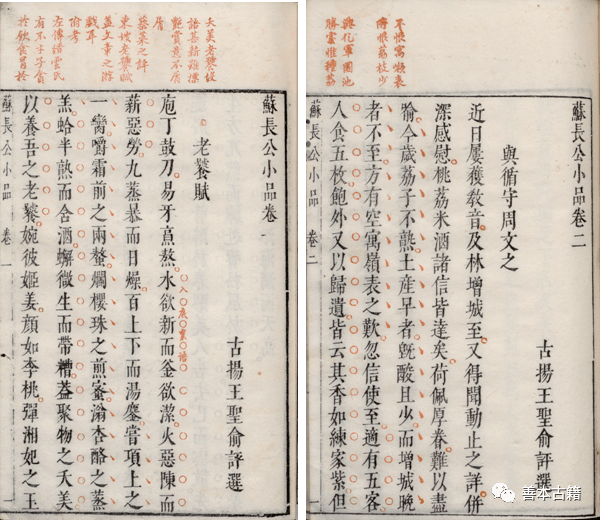 蘇長公小品卷一
古揚王聖俞評選
老饕賦
庖丁鼓刀易牙烹熬水欲新而釜欲潔火惡陳而
薪惡勞九蒸暴而日燥百上下而湯鏖嘗項上之
一臠嚼霜前之兩螯爛櫻珠之煎蜜滃杏酪之蒸
羔蛤半熟而含酒蠏微生而帶糟葢聚物之夭美
以養吾之老饕婉彼姬姜顏如李桃彈湘妃之玉
蘇長公小品 卷一 一
東坡老饕賦
蓋文章之游
戲耳
附考
左傳縉雲氏
有不才子貪
於飲食冒於
蘇長公小品卷二
古揚王聖俞評選
與循守周文之
近日屢獲敎音及林增城至又得聞動止之詳併
深感慰桃荔米酒諸信皆達矣荷佩厚眷難以盡
喻今歲荔子不熟土產早者旣酸且少而增城晚
者不至方有空寓嶺表之歎忽信使至適有五客
人食五枚飽外又以歸遺皆云其香如練家紫但
蘇長公小品 卷二 一
不恨寓嶺表
恨荔枝少
興化軍園池
勝處惟種荔
善本古籍